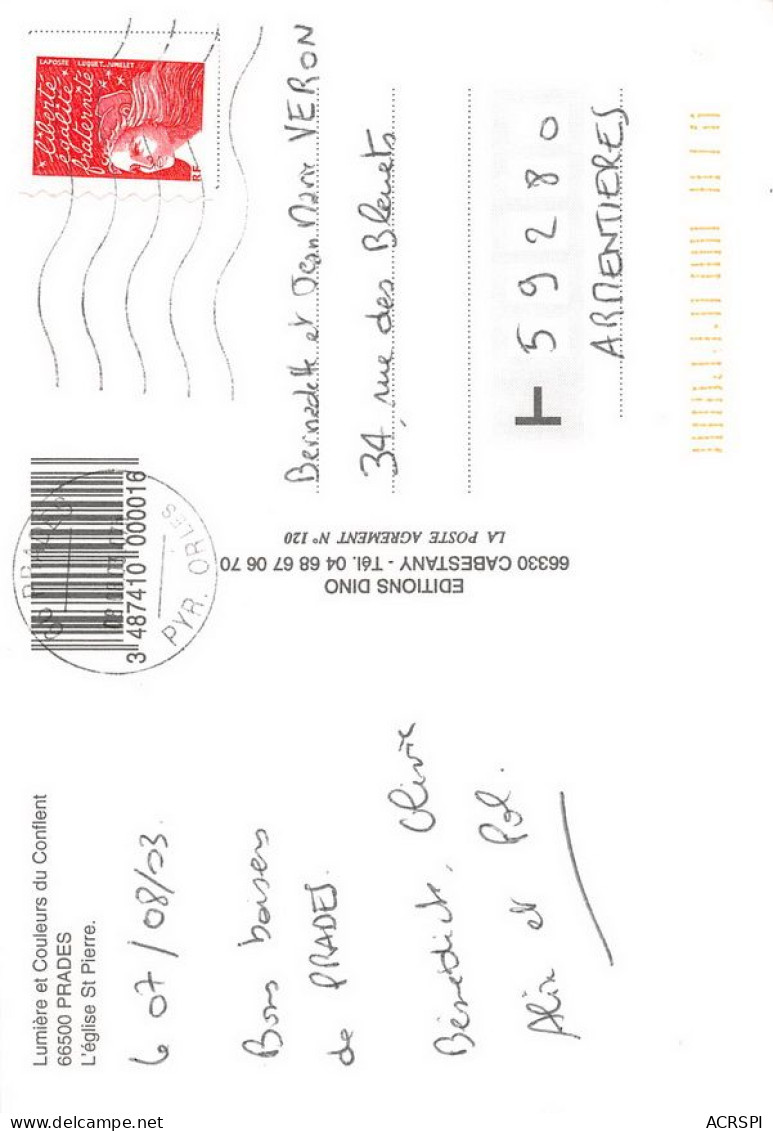 Lumière et Couleurs du Conflent
66500 PRADES
L'église St Pierre.
le 07/08/03.
Bons baisers
de PRADES.
Bénédicte, Olivie
Alix et Pol.
EDITIONS DINO
66330 CABESTANY - Tél. 04 68 67 06 70
LA POSTE AGREMENT N° 120
3 487410 000016
PRADES
PYR. ORLES
LAPOSTE LUQUET JUMELET
liberté
égalité
fraternité
RF
Bernadette et Jean Marie VERON
34, rue des Bleuets
59280
ARMENTIERES
ACRSPI